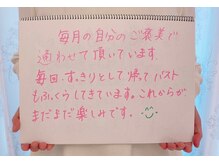 毎月の自分のご褒美で
通わせて頂いています。
毎回、すっきりとして帰ってバスト
もふっくらしてきています。これからが
まだまだ楽しみです。